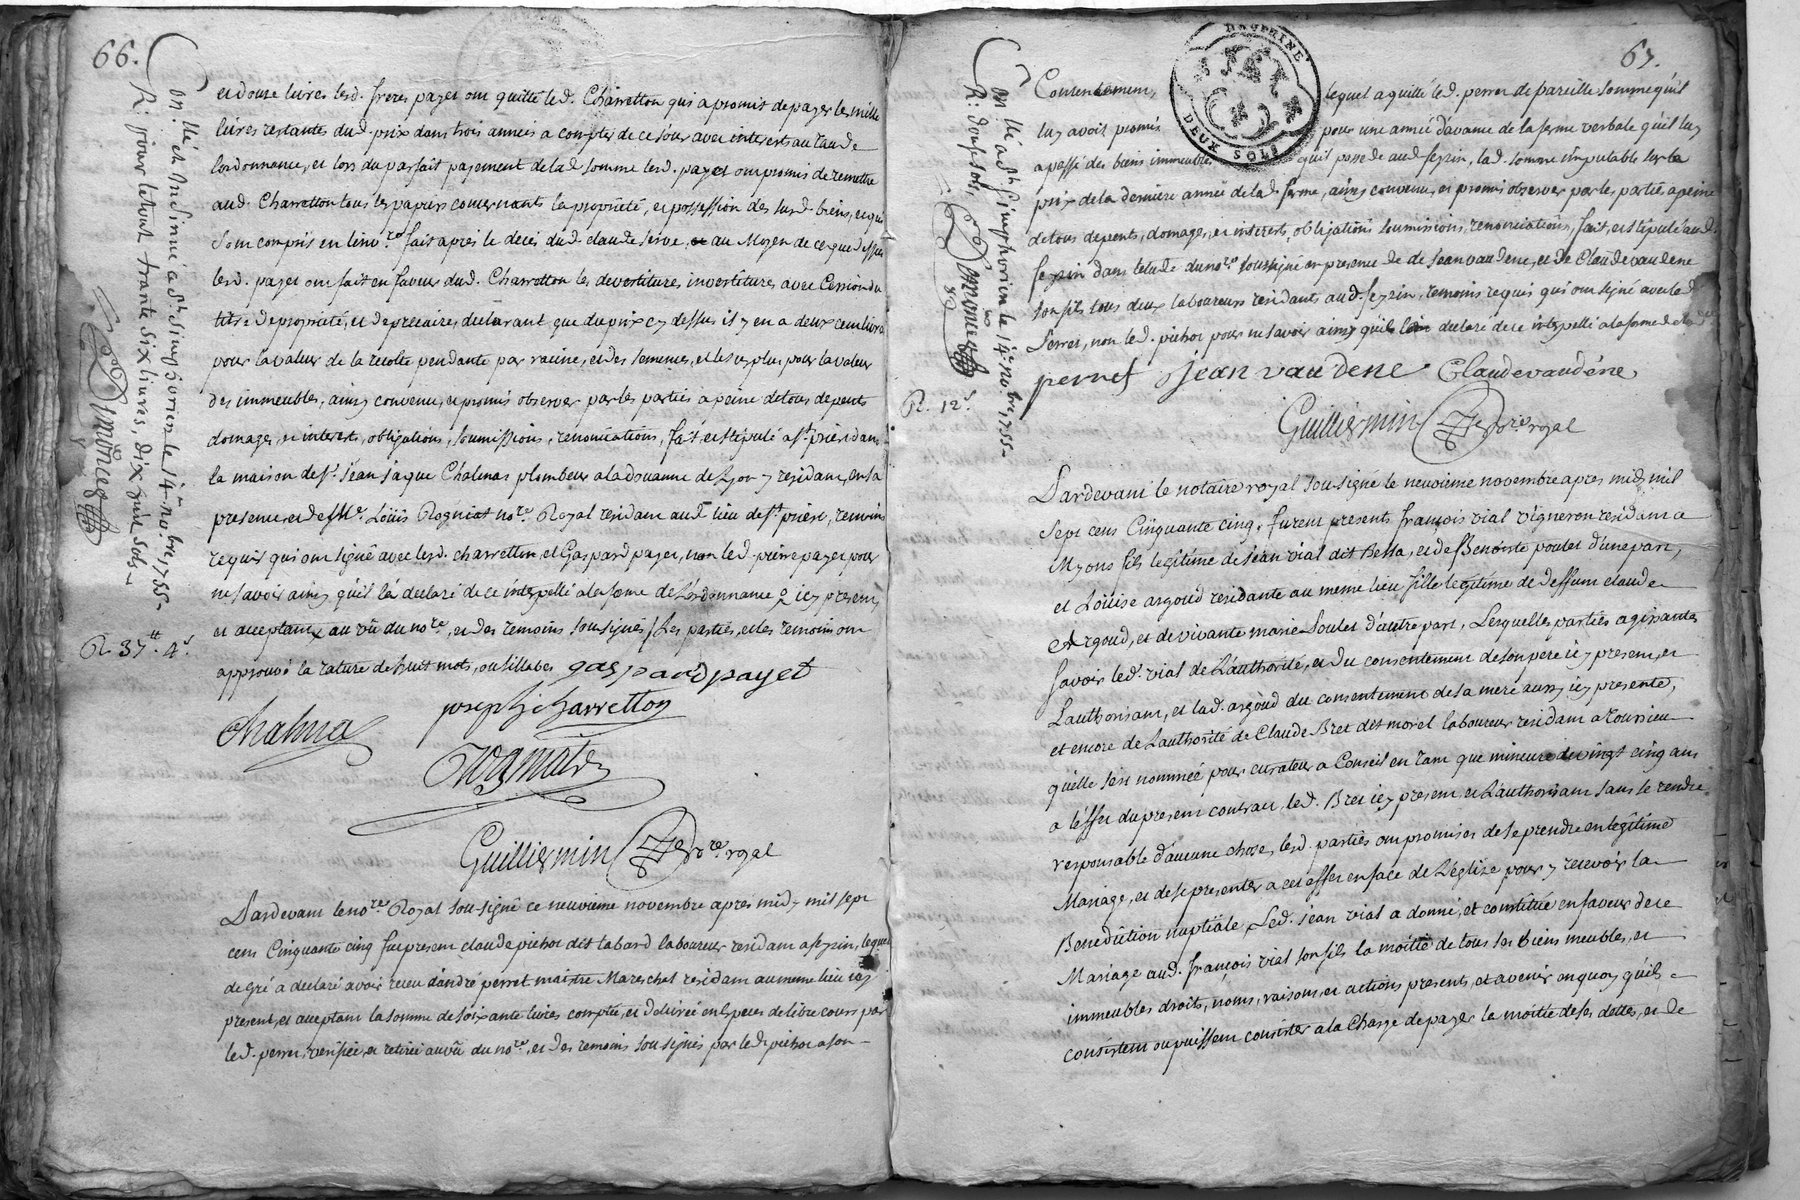 66.
et douze livres lesd. freres payet ont quitté led. Charretton qui a promis de payer les mille
livres restantes dud. prix dans trois années a compter de ce jour avec interets au taux de
lordonnance, et lors du parfait payement de lad. somme lesd. payet ont promis de remettre
aud. Charretton tous les papiers concernants la propriété, et possession des susd. biens, et qui
sont compris en linv.re fait après le deces dud. claude serve, au moyen de ce que dessus
lesd. payet ont fait en faveur dud. Charretton les devestitures investitures avec Cession du
titre de propriété, et de precaire, declarant que du prix cy dessus il y en a deux cens livres
pour la valeur de la recolte pendante par racine, et des semences, et le surplus pour la valeur
des immeubles, ainsy convenu, et promis observer par les parties a peine de tous depents
domages, et interets, obligations, soumissions, renonciations, fait, et stipulé a st. priest dans
la maison de sr. jean jaque Chalmas plombeur a la douanne de Lyon y residant, en sa
presence, et de Me. Loüis Rogniat no.re Royal residant aud. lieu de st. priest, temoins
requis qui ont signé avec lesd. charretton, et Gaspard payet, non led. pierre payet pour
ne savoir ainsy qu'il l'a declaré de ce interpellé a la forme de L'ordonnance
et acceptant au vû du no.re, et des temoins sousignes / Les parties, et les temoins ont
approuvé la rature de huit mots, ou sillabes gaspard payet
Chalmas joseph Charretton
Rogniat
Guilliermin no.re royal
Pardevant le no.re Royal sousigné ce neuvieme novembre apres midy mil sept
cens Cinquante cinq fut present claude pichot dit tabard laboureur residant a feyzin, lequel
de gré a declaré avoir receu d'andré perret maitre Marechal residant au meme lieu icy
present, et acceptant la somme de soixante livres comptée, et delivrée en Especes de libre cours par
led. perret, verifiée, et retirée au vû du no.re, et des temoins sousignés par led. pichot a son
on.llé et insinué a st. Simphorien le 14e. no.bre 1755
R: pour le tout trante six livres, dix neuf sols
R. 37tt. 4s.
67.
DAUPHINÉ
DEUX SOLS
Contentement, lequel a quitté led. perret de pareille somme qu'il
luy avoit promis pour une année d'avance de la ferme verbale qu'il luy
a passé des biens immeubles qu'il possede aud. feyzin, lad. somme imputable sur le
prix de la derniere année de lad. ferme, ainsy convenu, et promis observer par les parties a peine
de tous depents, domages, et interets, obligations soumissions, renonciations, fait, et stipulé aud.
feyzin dans letude du no.re sousigné en presence de jean vaudene, et de Claude vaudene
son fils tous deux laboureurs residants aud. feyzin, temoins requis qui ont signé avec led.
perret, non led. pichot pour ne savoir ainsy qu'il l'a declaré de ce interpellé a la forme de
perret jean vaudene Claude vaudéne
Guilliermin no.re royal
Pardevant le notaire royal sousigné le neuvieme novembre apres midy mil
sept cens Cinquante cinq, furent presents françois vial vigneron residant a
Myons fils legitime de jean vial dit Bessa, et de Benoiste poulet d'une part,
et Loüise argoud residante au meme lieu fille legitime de deffunt claude
Argoud, et de vivante marie Soulet d'autre part, Lesquelles parties agissantes
savoir led. vial de L'authorité, et du consentement de son pere icy present, et
L'authorisant, et lad. argoud du consentement de sa mere aussy icy presente,
et encore de L'authorité de Claude Bret dit morel laboureur residant a toussieu
qu'elle s'est nommée pour curateur a Conseil en tant que mineure de vingt cinq ans
a l'effet du present contrat, led. Bret icy present, et L'authorisant sans se rendre
responsable d'aucune chose, lesd. parties ont promis de se prendre en legitime
Mariage, et de se presenter a cet effet en face de L'église pour y recevoir la
Benediction nuptiale, Led. jean vial a donné, et constitué en faveur de ce
Mariage aud. françois vial son fils la moitié de tous ses biens meubles, et
immeubles droits, noms, raisons, et actions presents, et avenir en quoy qu'ils
consistent ou puissent consister a la Charge de payer la moitié de ses dettes, et de
on.llé a st. Simphorien le 14e. no.bre 1755
R: douse sols,
R. 12s.